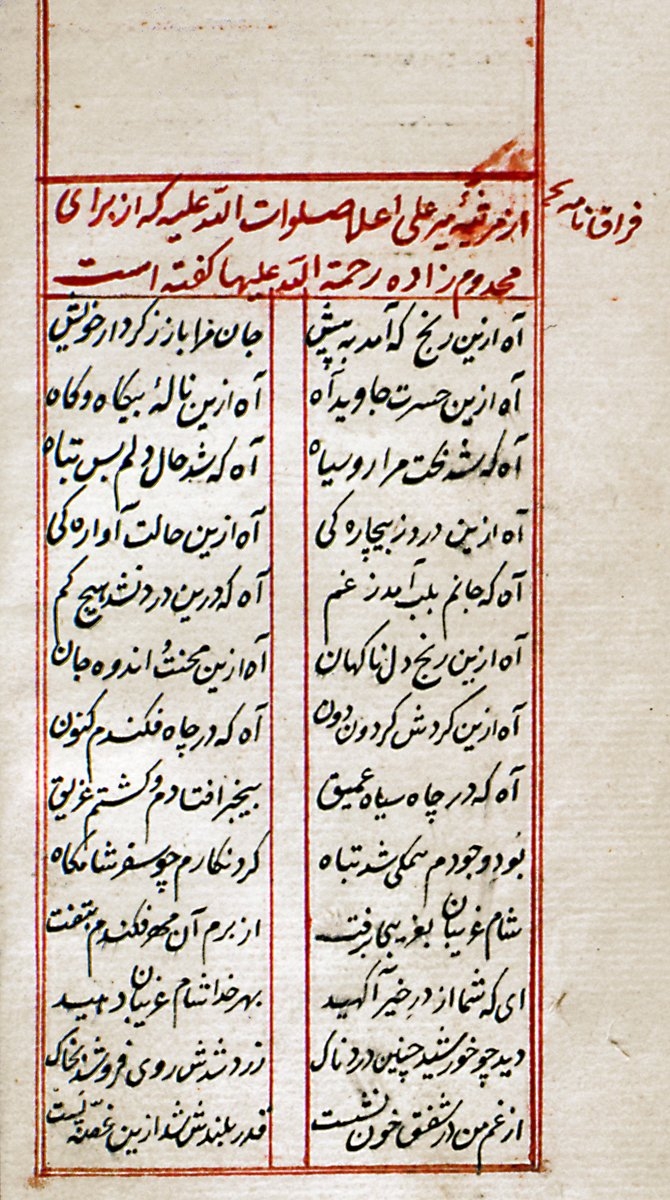 فراقنامه
از مرثیهٔ میر علی اعلی صلوات الله علیه که از برای
مخدوم زاده رحمة الله علیها کفته است
آه ازین رنج که آمد به پیش جان مرا باز ز کردار خویش
آه ازین حسرت جاوید آه آه ازین نالهٔ بیکاه و کاه
آه که شد بخت مرا رو سیاه آه که شد حال دلم بس تباه
آه ازین درد ز بیچاره کی آه ازین حالت آواره کی
آه که جانم بلب آمد ز غم آه که درین درد نشد هیچ کم
آه ازین رنج دل ناکهان آه ازین محنت و اندوه جان
آه ازین کردش کردون دون آه که در چاه فکندم کنون
آه که در چاه سیاه عمیق بیخبر افتادم و کشتم غریق
بود وجودم همکی شد تباه کرد نکارم چو سفر شامکاه
شام غریبان بغریبی برفت از برم آن مه فکندم بتفت
ای که شما از در خیر آکهید بهر خدا شام غریبان دهید
دید چو خورشید چنین دردناک زرد شدش روی فرو شد بخاک
از غم من در شفق خون نشست قدر بلندش شد ازین غصه پست